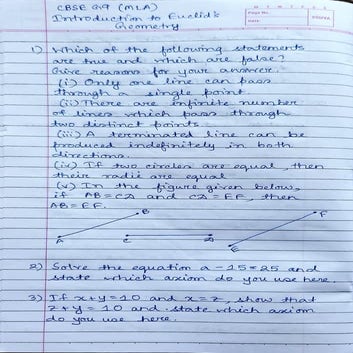 CBSE Cl-9 (MLA)
Introduction to Euclid's
Geometry
Page No.
Date
1) Which of the following statements
are true and which are false?
Give reasons for your answer.
(i) Only one line can pass
through a single point.
(ii) There are infinite number
of lines which pass through
two distinct points
(iii) A terminated line can be
produced indefinitely in both
directions.
(iv) If two circles are equal, then
their radii are equal
(v) In the figure given below,
if AB=CD and CD=EF, then
AB=EF.
A B C D E F
2) Solve the equation a-15=25 and
state which axiom do you use here.
3) If x+y=10 and x=z, show that
z+y=10 and state which axiom
do you use here.